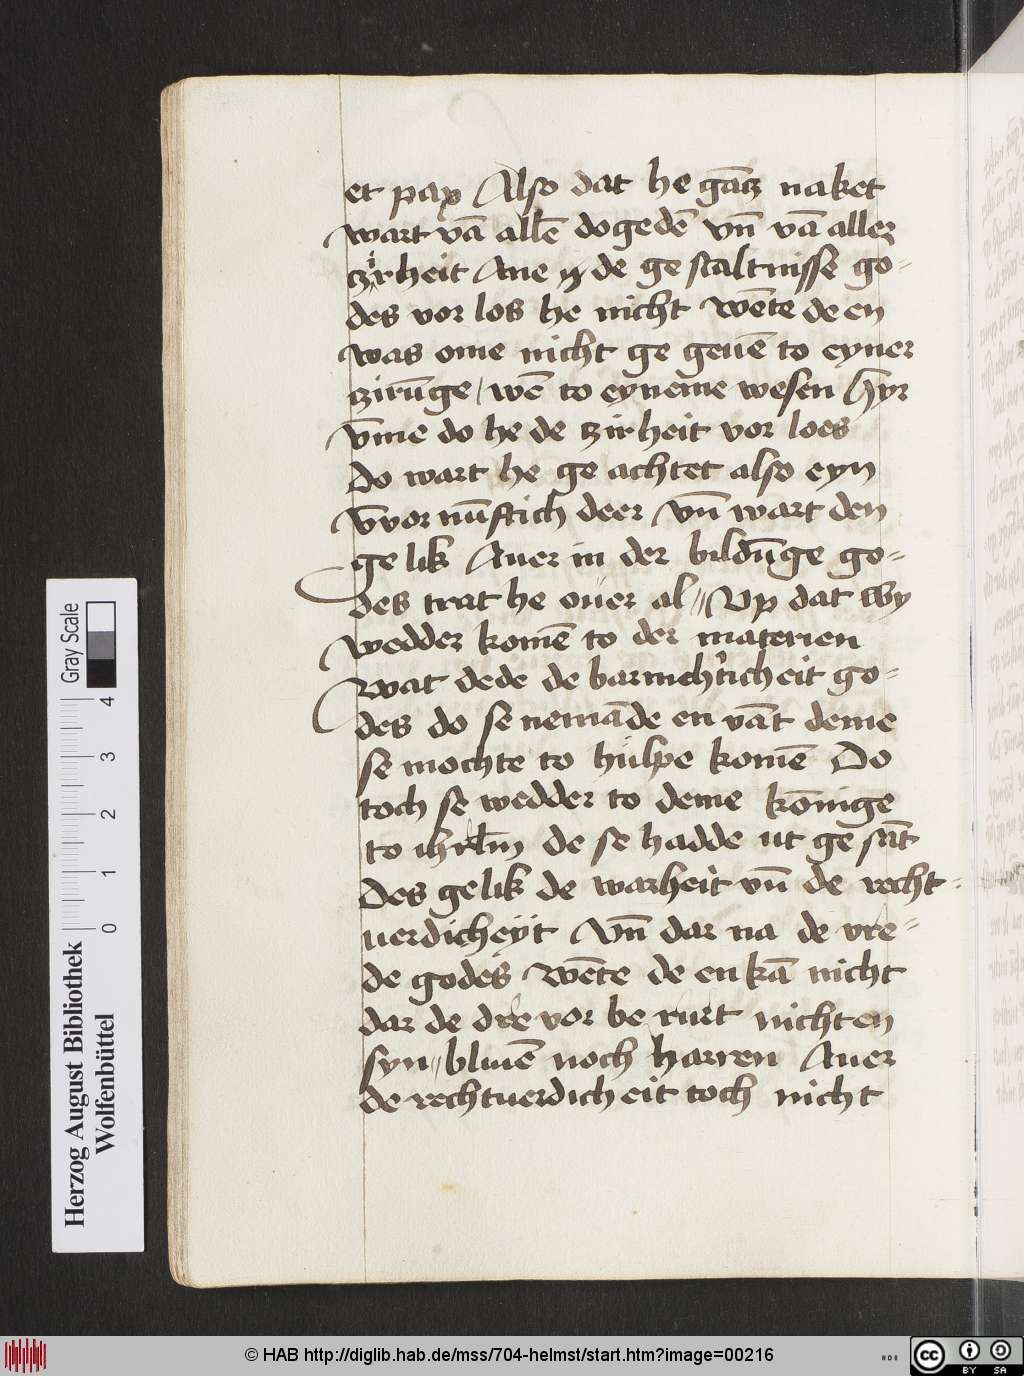 et pax Also dat he gātz naket
wart vā allē dogedē vn̄ vā aller
zirheit Ane de ge staltnisse go-
des vor los he nicht wēte de en
was ome nicht ge geuē to eyner
zirūge / wē to eyneme wesen Hyr
v̄me do he de zirheit vor loes
do wart he ge achtet also eyn
v̄vor nūftich deer vn̄ wart den
ge lik Auer in der bildūge go-
des trat he ouer al // Vp dat wy
wedder komē to der materien
Wat dede de barmh'ticheit go-
des do se nemāde en vāt deme
se mochte to hulpe komē Do
toch se wedder to deme kōnige
to ihrl̄m de se hadde ut ge sāt
Des gelik de warheit vn̄ de recht-
uerdicheyt Vn̄ dar na de vre-
de godes wēte de en kā nicht
dar de dre vor be rurt nicht en
syn // bliuē noch harren Auer
de rechtuerdich eit toch nicht
Herzog August Bibliothek
Wolfenbüttel
0 1 2 3 4
Gray Scale
© HAB http://diglib.hab.de/mss/704-helmst/start.htm?image=00216
cc BY SA